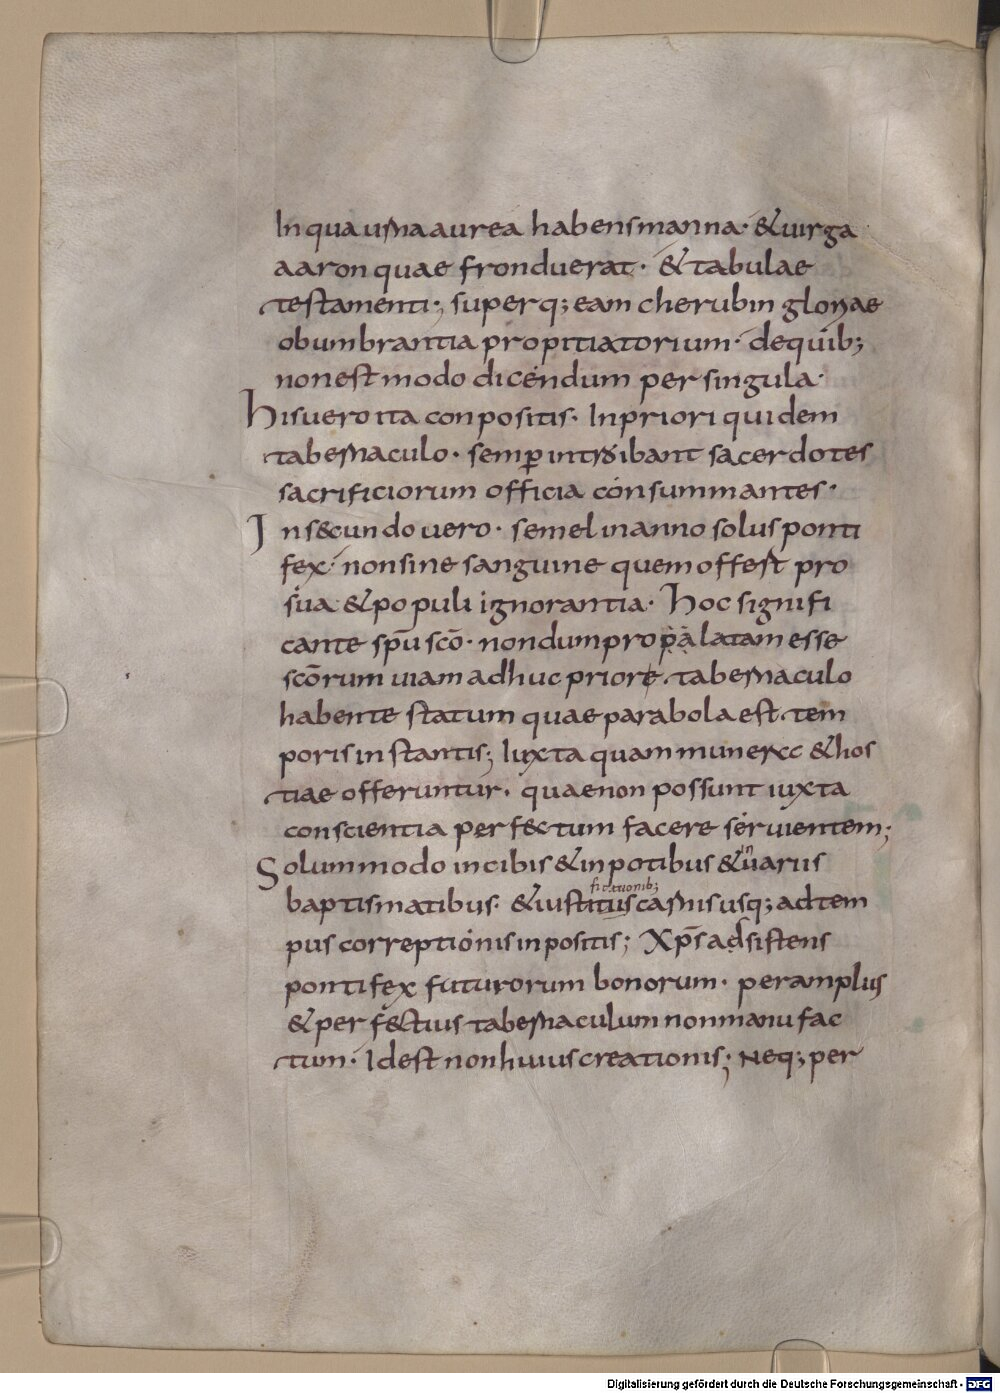 In qua urna aurea habens manna· & uirga
aaron quae fronduerat· & tabulae
testamenti; superq; eam cherubin gloriae
obumbrantia propitiatorium· de quib;
non est modo dicendum per singula·
His uero ita conpositis· In priori quidem
tabernaculo· semp̱ introibant sacerdotes
sacrificiorum officia consummantes·
In s&cundo uero· semel in anno solus ponti
fex· non sine sanguine quem offest pro
sua & populi ignorantia· Hoc signifi
cante sp̄u sc̄o· nondum propalatam esse
sc̄orum uiam adhuc priore· tabernaculo
habente statum quae parabola est· tem
poris instantis; Iuxta quam munera & hos
tiae offeruntur· quae non possunt iuxta
conscientia perfectum facere seruientem;
Solummodo in cibis & in potibus & in uariis
baptismatibus· & iustitus carnis usq; ad tem
pus correptionis inpositis; Xp̄s adsistens
pontifex futurorum bonorum· per amplius
& perf&ctius tabernaculum non manu fac
tum· Id est non huius creationis; Neq; per
Digitalisierung gefördert durch die Deutsche Forschungsgemeinschaft - DFG